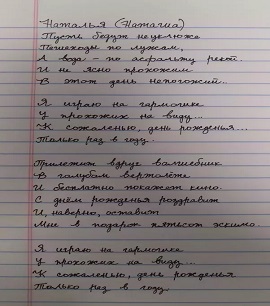 Наталья (Наташа)
Пусть бегут неуклюже
Пешеходы по лужам,
А вода - по асфальту рекой.
И не ясно прохожим
В этот день непогожий...
Я играю на гармошке
У прохожих на виду...
К сожаленью, день рожденья...
Только раз в году.
Прилетит вдруг волшебник
В голубом вертолёте
И бесплатно покажет кино.
С днём рожденья поздравит
И, наверно, оставит
Мне в подарок пятьсот эскимо.
Я играю на гармошке
У прохожих на виду...
К сожаленью, день рожденья
Только раз в году.